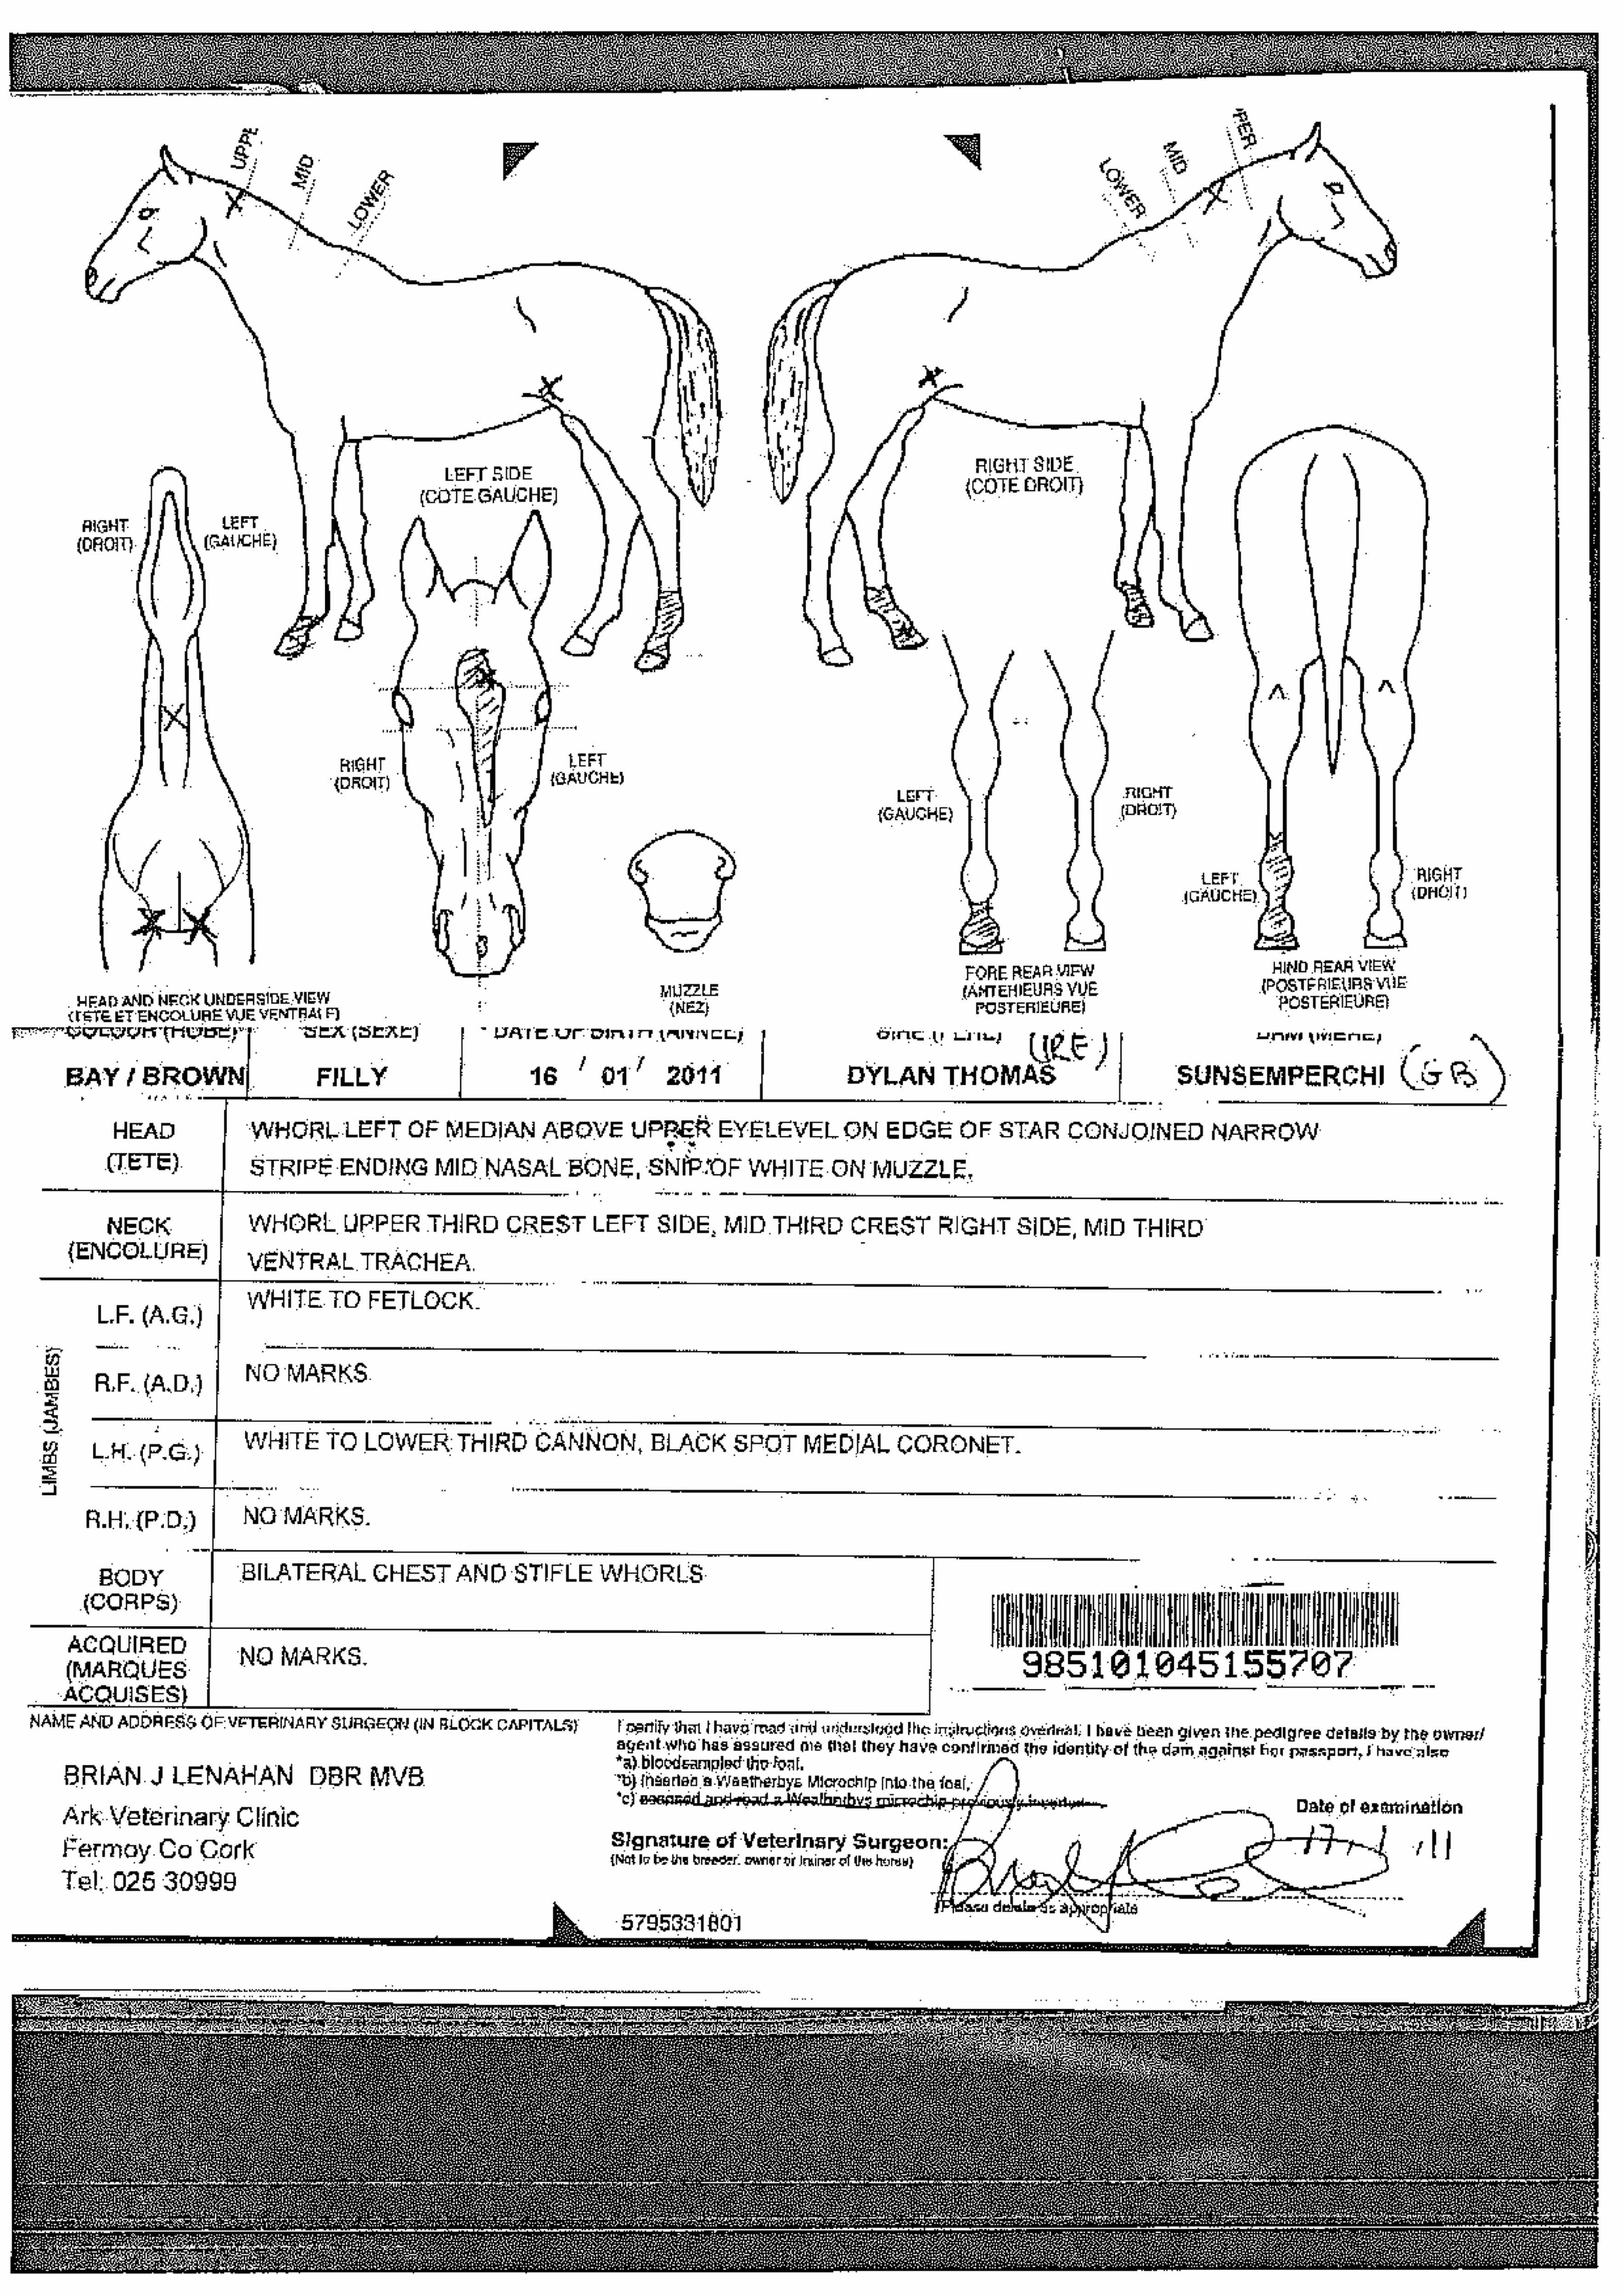 UPPE
MID
LOWER
LOWER
MID
PER
LEFT SIDE
(COTE GAUCHE)
RIGHT SIDE
(COTE DROIT)
RIGHT
(DROIT)
LEFT
(GAUCHE)
RIGHT
(DROIT)
LEFT
(GAUCHE)
LEFT
(GAUCHE)
RIGHT
(DROIT)
LEFT
(GAUCHE)
RIGHT
(DROIT)
HEAD AND NECK UNDERSIDE VIEW
(TETE ET ENCOLURE VUE VENTRALE)
MUZZLE
(NEZ)
FORE REAR VIEW
(ANTERIEURS VUE
POSTERIEURE)
HIND REAR VIEW
(POSTERIEURS VUE
POSTERIEURE)
COLOUR (ROBE) SEX (SEXE) DATE OF BIRTH (ANNEE) SIRE (PERE) DAM (MERE)
BAY / BROWN FILLY 16 / 01 / 2011 DYLAN THOMAS (IRE) SUNSEMPERCHI (GB)
HEAD
(TETE)
WHORL LEFT OF MEDIAN ABOVE UPPER EYELEVEL ON EDGE OF STAR CONJOINED NARROW
STRIPE ENDING MID NASAL BONE, SNIP OF WHITE ON MUZZLE.
NECK
(ENCOLURE)
WHORL UPPER THIRD CREST LEFT SIDE, MID THIRD CREST RIGHT SIDE, MID THIRD
VENTRAL TRACHEA.
LIMBS (JAMBES)
L.F. (A.G.) WHITE TO FETLOCK.
R.F. (A.D.) NO MARKS.
L.H. (P.G.) WHITE TO LOWER THIRD CANNON, BLACK SPOT MEDIAL CORONET.
R.H. (P.D.) NO MARKS.
BODY
(CORPS)
BILATERAL CHEST AND STIFLE WHORLS
ACQUIRED
(MARQUES
ACQUISES)
NO MARKS.
985101045155707
NAME AND ADDRESS OF VETERINARY SURGEON (IN BLOCK CAPITALS)
BRIAN J LENAHAN DBR MVB
Ark Veterinary Clinic
Fermoy Co Cork
Tel: 025 30999
I certify that I have read and understood the instructions overleaf. I have been given the pedigree details by the owner/
agent who has assured me that they have confirmed the identity of the dam against her passport, I have also
*a) bloodsampled the foal.
*b) Inserted a Weatherbys Microchip into the foal.
*c) scanned and read a Weatherbys microchip previously inserted
Date of examination
17 / 1 / 11
Signature of Veterinary Surgeon:
(Not to be the breeder, owner or trainer of the horse)
*Please delete as appropriate
5795331801